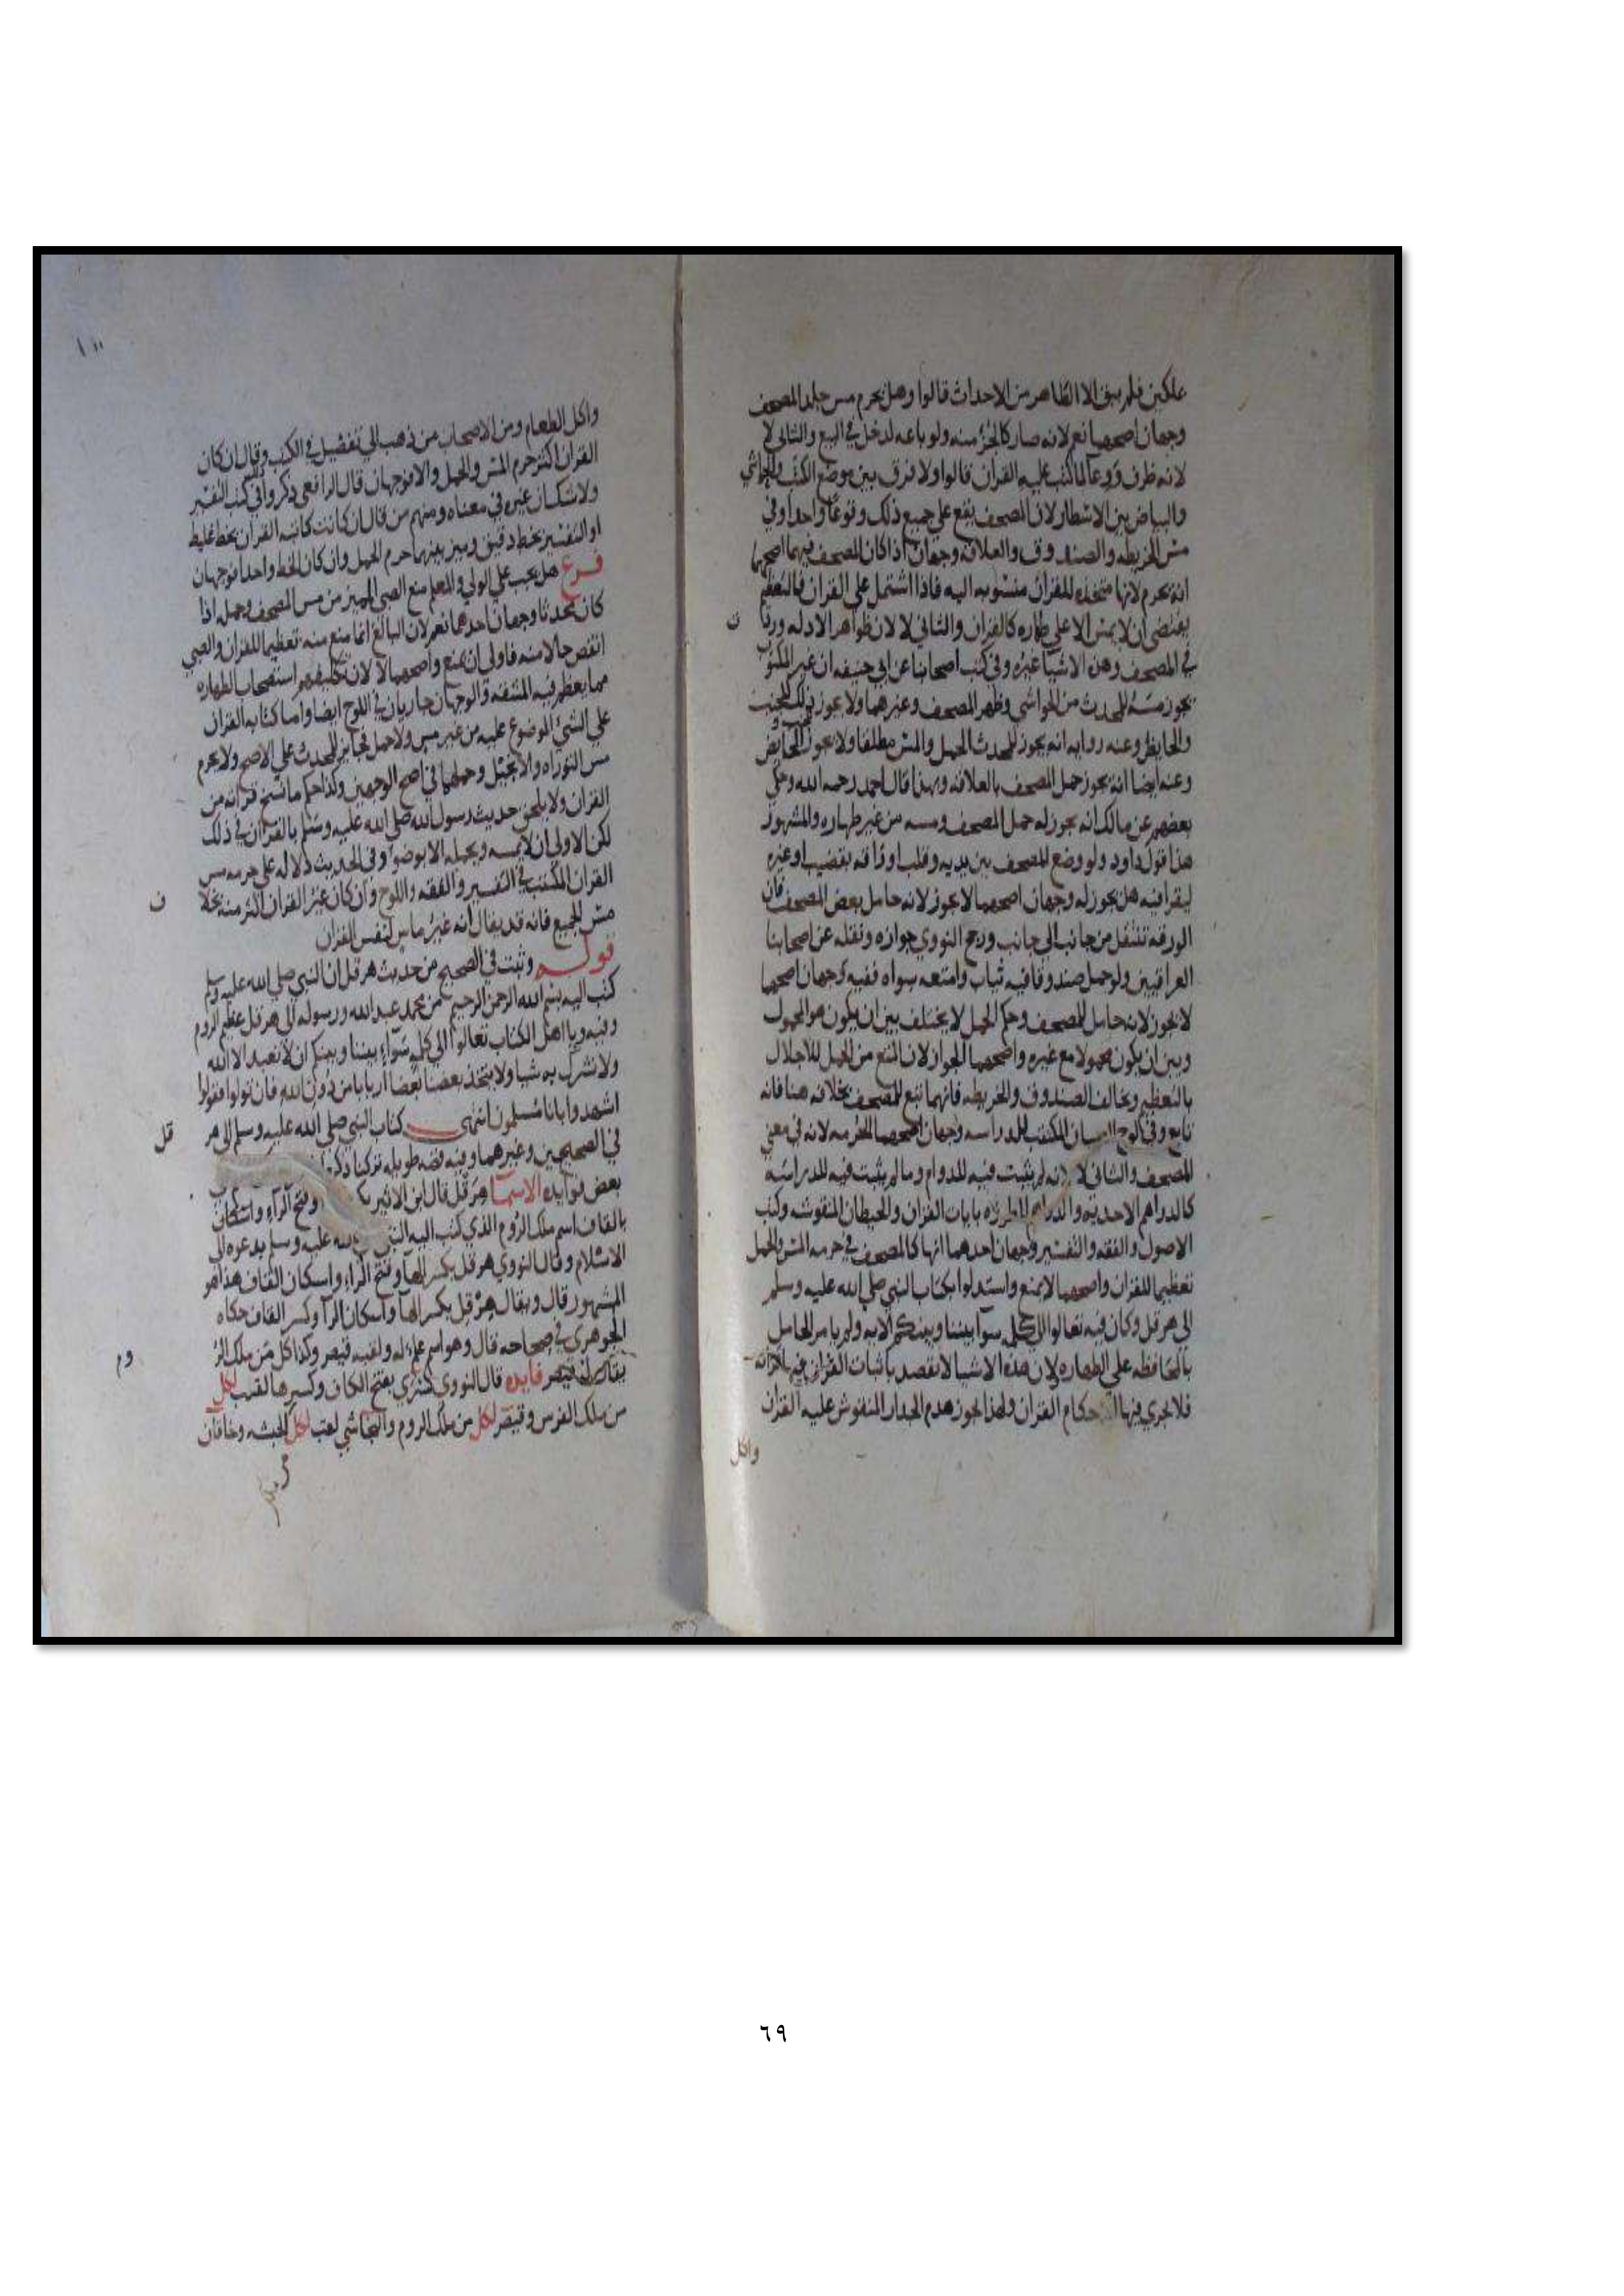 علمكين فلم يبق الا الظاهر من الاحداث قالوا وهل يحرم مس جلد المصحف
وجهان اصحهما نعم لانه صار كالجزء منه ولو باعه لدخل في البيع والثاني لا
لانه ظرف ووعآ لما كتب عليه القران قالوا ولا فرق بين موضع الكتب والحواشي
والبياض بين الاسطار لان المصحف يقع على جميع ذلك وقوعا واحدا وفي
مس الخريطه والصندوق والعلاقه وجهان اذا كان المصحف فيهما اصحهما
انه يحرم لانها متخذه للقران منسوبه اليه فاذا اشتمل على القران فالتعظيم
يقتضي ان لا يمس الا على طهاره كالقران والثاني لا لان ظواهر الادله وردت
في المصحف وهن الاشيا غيره وفي كتب اصحابنا عن ابي حنيفه ان غير المكتوب
يجوز مسه للمحدث من الحواشي وظهر المصحف وغيرهما ولا يجوز ذلك للجنب
والحايض وعنه روايه انه يجوز للمحدث الحمل والمس مطلقا ولا يجوز للجنب والحايض
وعنه ايضا انه يجوز حمل المصحف بالعلاقه وبهذا قال احمد رحمه الله وحكي
بعضهم عن مالك انه يجوز له حمل المصحف ومسه من غير طهاره والمشهور
هذا قول داود ولو وضع المصحف بين يديه وقلب اوراقه بقضيب او غيره
ليقرا فيه هل يجوز له وجهان اصحهما لا يجوز لانه حامل بعض المصحف فان
الورقه تنتقل من جانب الى جانب ورجح النووي جوازه ونقله عن اصحابنا
العراقيين ولو حمل صندوقا فيه ثياب وامتعه سواه ففيه وجهان اصحهما
لا يجوز لانه حامل للمصحف وحكم الحمل لا يختلف بين ان يكون هو المحمول
وبين ان يكون محمولا مع غيره واصحهما الجواز لان المنع من الحمل للاجلال
بالتعظيم ويخالف الصندوق والخريطه فانهما تبع للمصحف بخلافه هنا فانه
تابع وفي لوح الصبيان المكتب للدراسه وجهان اصحهما الحرمه لانه في معني
المصحف والثاني لا لانه لم يثبت فيه للدوام وما لم يثبت فيه للدراسه
كالدراهم الاحديه والدراهم المطرزه بايات القران والحيطان المنقوشه وكتب
الاصول والفقه والتفسير وجهان احدهما انها كالمصحف في حرمه المس والحمل
تعظيما للقران واصحهما لا يمنع واستدلوا بكتاب النبي صلى الله عليه وسلم
الى هرقل وكان فيه تعالوا الى كلمه سوآ بيننا وبينكم الايه ولم يامر الحامل
بالمحافظه على الطهاره ولان هذه الاشيا لا يقصد باثبات القران فيه
فلا تجري فيها احكام القران ولهذا يجوز هدم الجدار المنقوش عليه القران
واكل
واكل الطعام ومن الاصحاب من ذهب الى تفصيل في الكتب وقال ان كان
القران اكثر حرم المس والحمل والا فوجهان قال الرافعي ذكروا في كتب التفسير
ولا شك ان غيره في معناه ومنهم من قال ان كانت كتابه القران بخط غليظ
او التفسير بخط دقيق وميز بينهما حرم الحمل وان كان الخط واحدا فوجهان
فرع هل يجب على الولي والمعلم منع الصبي المميز من مس المصحف وحمله اذا
كان محدثا وجهان احدهما نعم لان البالغ انما منع منه تعظيما للقران والصبي
انقص حالا منه فاولى ان يمنع واصحهما لا لان تكليفهم استصحاب الطهاره
مما يعظم فيه المشقه والوجهان جاريان في اللوح ايضا واما كتابه القران
على الشئ الموضوع عليه من غير مس ولا حمل فجايز للمحدث على الاصح ولا يحرم
مس التوراه والانجيل وحملهما في اصح الوجهين وكذا حكم ما نسخ قراته من
القران ولا يلحق حديث رسول الله صلى الله عليه وسلم بالقران في ذلك
لكن الاولى ان لا يمسه ويحمله الا بوضوء وفي الحديث دلاله على حرمه مس
القران المكتب في التفسير والفقه واللوح وان كان غير القران اكثر منه بخلاف
مس الجميع فانه قد يقال انه غير ماس لنفس القران
قوله وثبت في الصحيح من حديث هرقل ان النبي صلى الله عليه وسلم
كتب اليه بسم الله الرحمن الرحيم من محمد عبد الله ورسوله الى هرقل عظيم الروم
وفيه ويا اهل الكتاب تعالوا الى كلمه سوآء بيننا وبينكم ان لا نعبد الا الله
ولا نشرك به شيا ولا يتخذ بعضنا بعضا اربابا من دون الله فان تولوا فقولوا
اشهدوا بانا مسلمون انتهى كتاب النبي صلى الله عليه وسلم الى هرقل
في الصحيحين وغيرهما وفيه قصه طويله تركنا ذكرها
بعض فوايده الاسمآ هرقل قال ابن الاثير وفتح الرآء واسكان
بالقاف اسم ملك الروم الذي كتب اليه النبي الله عليه وسلم يدعوه الى
الاسلام وقال النووي هرقل بكسر الهآ وفتح الرآء واسكان القاف هذا هو
المشهور قال ويقال هرقل بكسر الهآ واسكان الرآ وكسر القاف حكاه
الجوهري في صحاحه قال وهو اسم علم له ولقبه قيصر وكذا كل من ملك الروم
يقال له قيصر فايده قال النووي كسرى بفتح الكاف وكسرها لقب لكل
من ملك الفرس وقيصر لكل من ملك الروم والنجاشي لقب لكل الحبشه وخاقان
٦٩